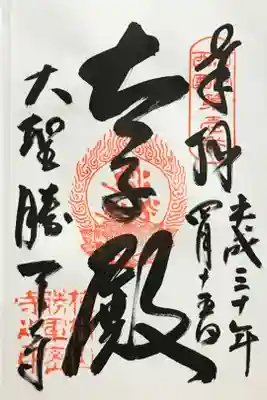 奉拝
平成三十年
四月十五日
太子殿
大聖勝軍寺